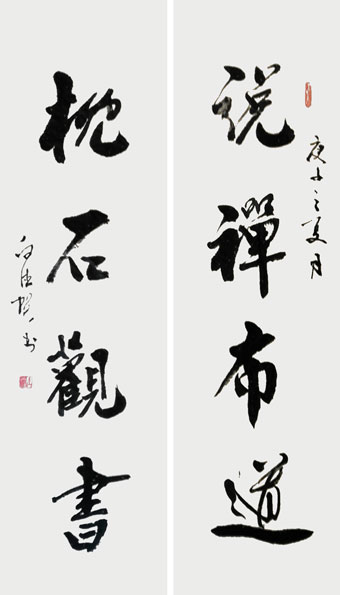 说禪布道
庚子之夏月
枕石觀書